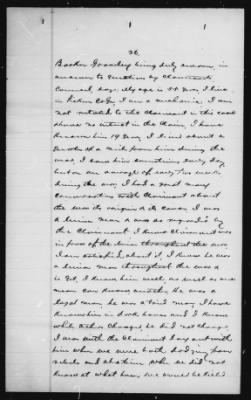 26
Booker Greenley being duly sworn, in
answer to Questions by Claimants
Counsel, says: My age is 55 yrs, I live
in Pickens Co Ga, I am a mechanic, I am
not related to the Claimant in this case
have no interest in the Claim, I have
known him 19 yrs, I lived about a
a mile from him during the
war, I saw him sometimes every day
but on an average of every two weeks
during the war, I had a great many
conversations with Claimant about
the war its origin & its cause, I was
a Union man & was so regarded by
the Claimant, I know Claimant was
in favor of the Union throughout the war,
I am satisfied about it, I know he was
a Union man throughout the war &
is yet, I know him well, as well as one
man can know another, He was a
loyal man, he was a tried man, I have
known him in dark hours and I know
while others changed he did not change,
I was with the Claimant day and with
him when we were both dodging from
rebels and at a time when we did not
know at what hour we would be killed